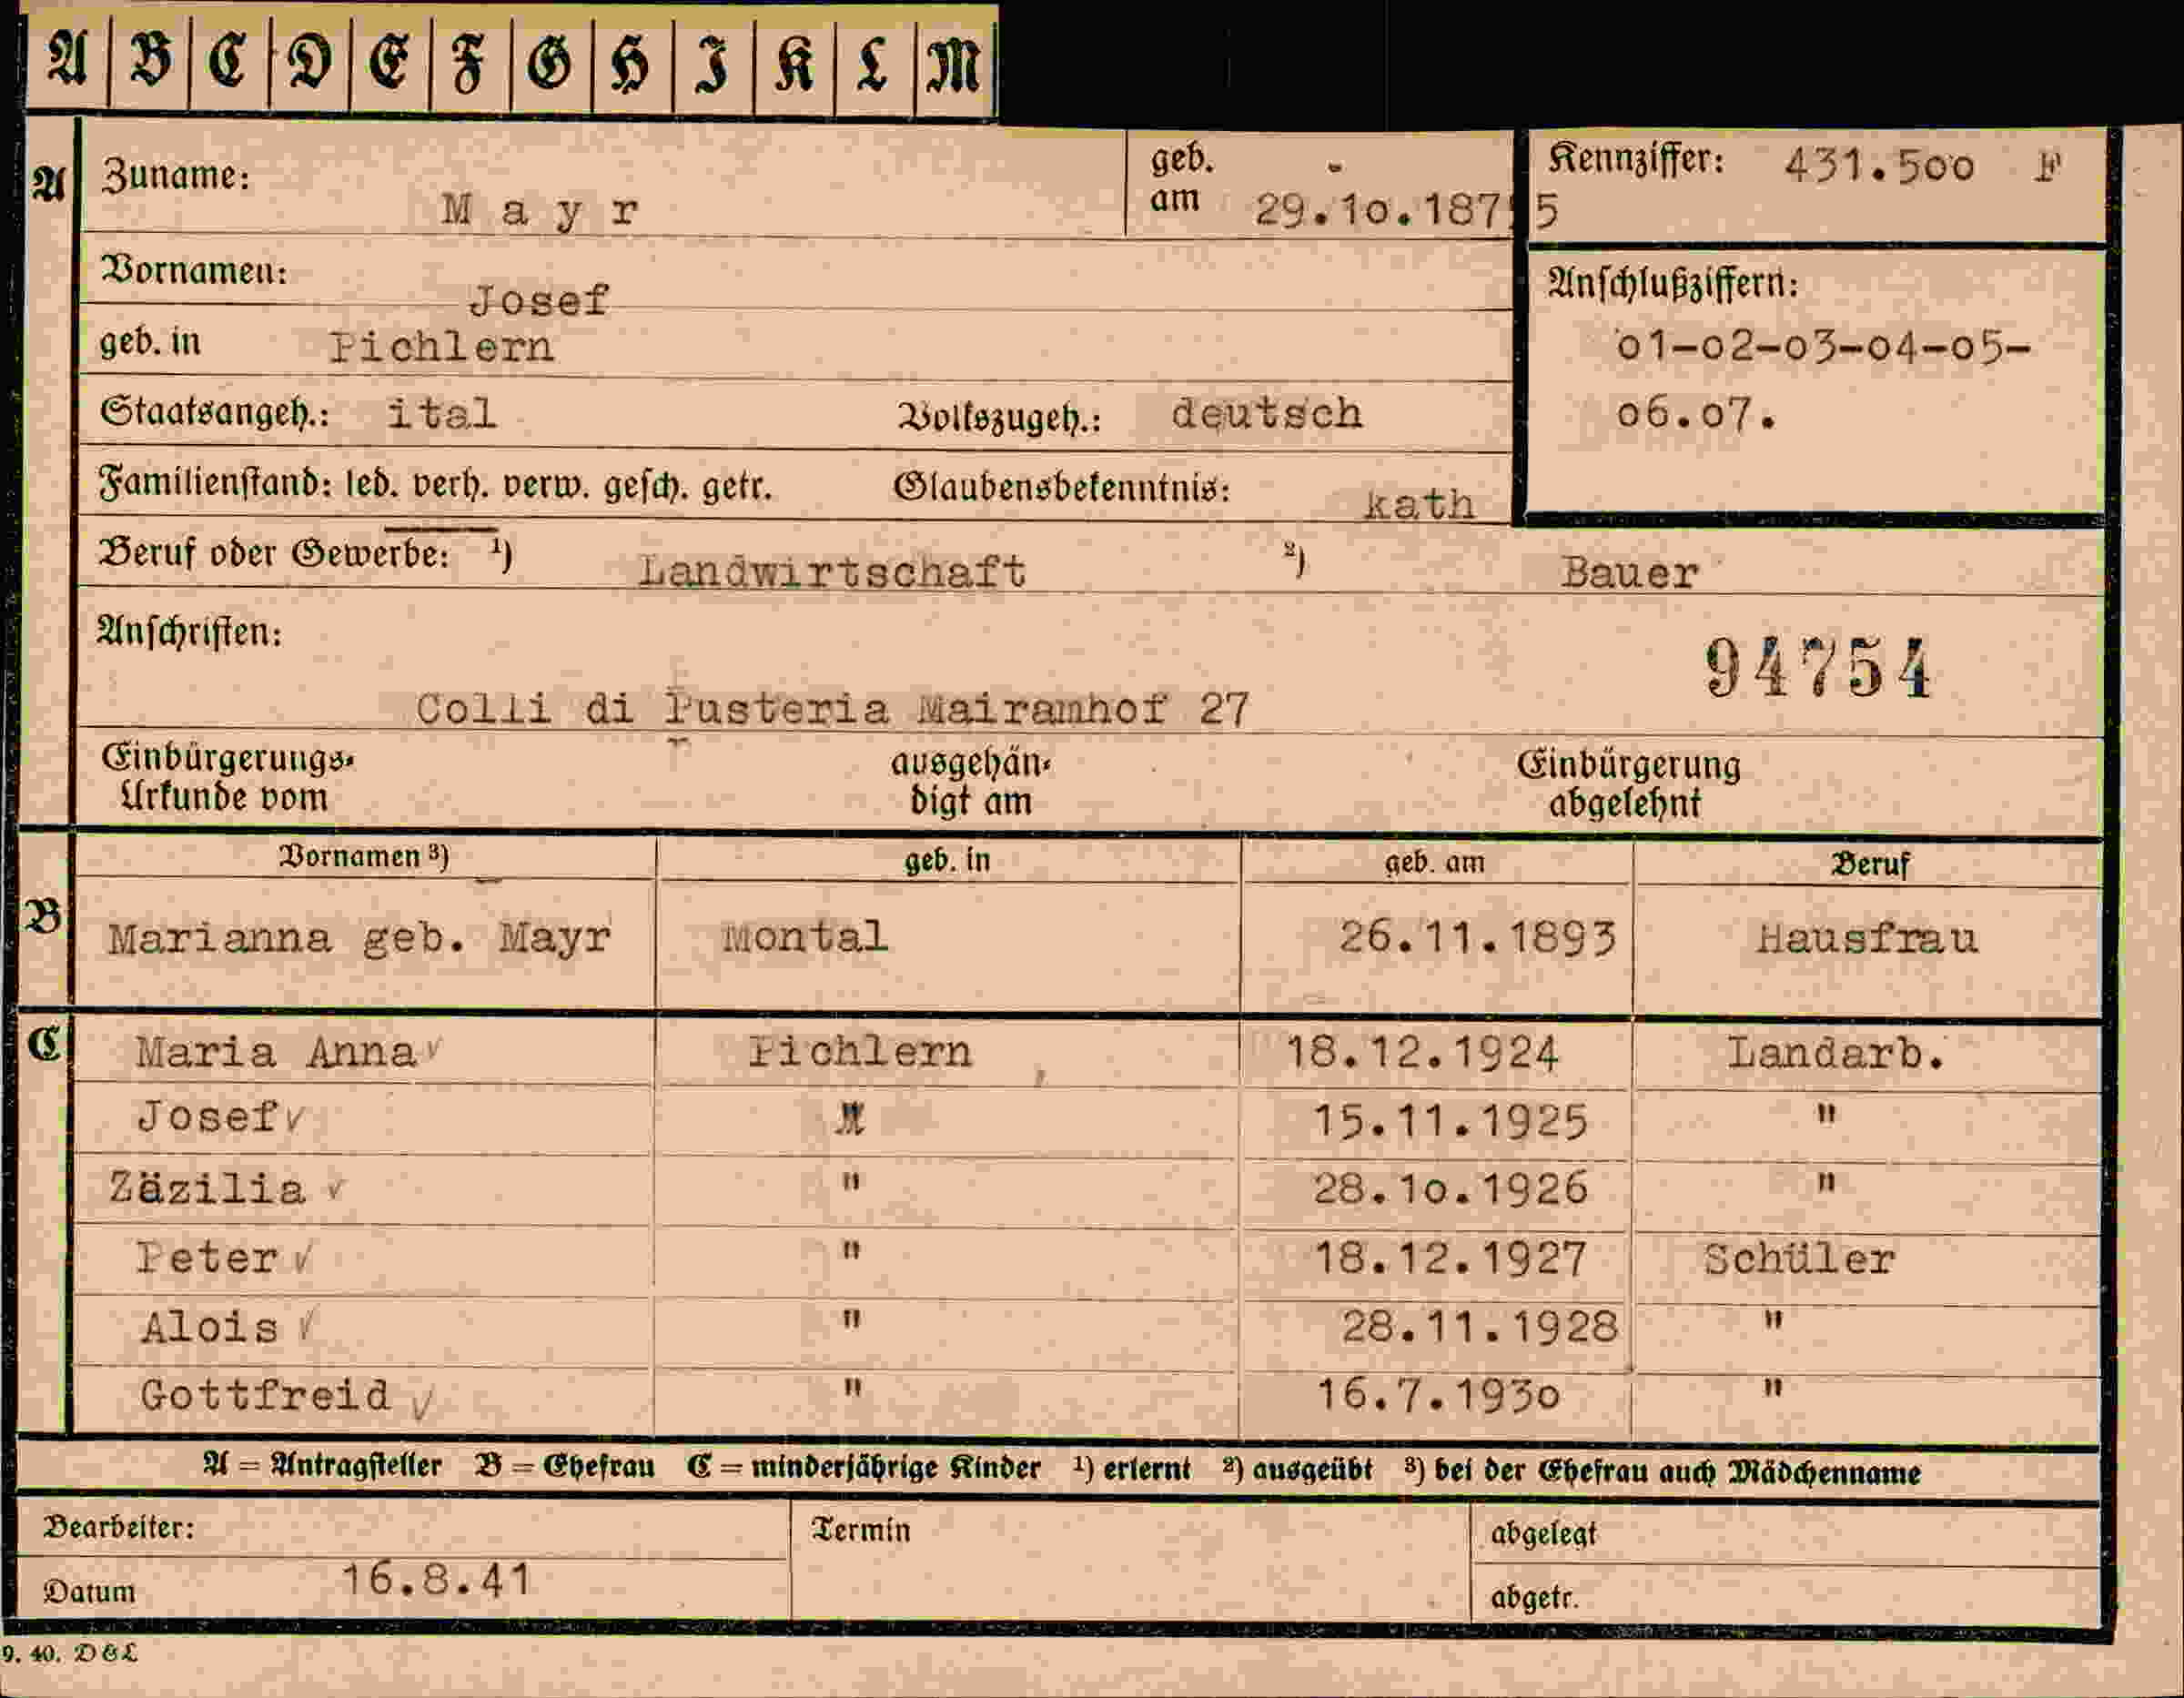 A B C D E F G H I K L M
A Zuname: Mayr geb. am 29.10.1875 Kennziffer: 431.500 F
Vornamen: Josef Anschlußziffern:
geb. in Pichlern 01-02-03-04-05-
Staatsangeh.: ital Volkszugeh.: deutsch 06.07.
Familienstand: led. verh. verw. gesch. getr. Glaubensbekenntnis: kath
Beruf oder Gewerbe: 1) Landwirtschaft 2) Bauer
Anschriften: 94754
Colli di Pusteria Mairamhof 27
Einbürgerungs- ausgehän- Einbürgerung
Urkunde vom digt am abgelehnt
Vornamen 3) geb. in geb. am Beruf
B Marianna geb. Mayr Montal 26.11.1893 Hausfrau
C Maria Anna Pichlern 18.12.1924 Landarb.
Josef " 15.11.1925 "
Zäzilia " 28.10.1926 "
Peter " 18.12.1927 Schüler
Alois " 28.11.1928 "
Gottfreid " 16.7.1930 "
A = Antragsteller B = Ehefrau C = minderjährige Kinder 1) erlernt 2) ausgeübt 3) bei der Ehefrau auch Mädchenname
Bearbeiter: Termin abgelegt
Datum 16.8.41 abgetr.
9. 40. D&L